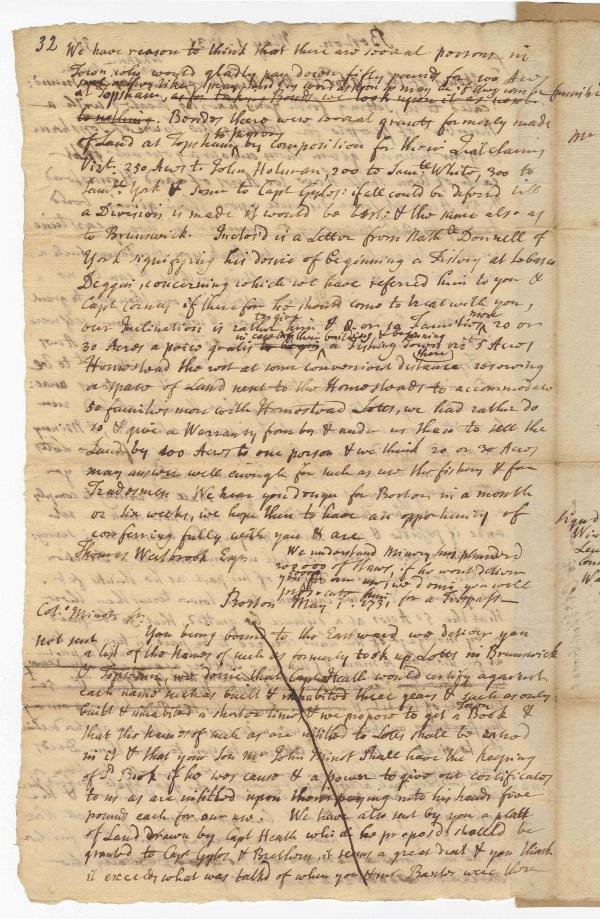 32 We have reason to think that there are several persons in
Town, who would gladly pay down fifty pounds for 100 Acres
at Topsham, as for taking Bonds we look upon it as
to nothing. Besides there were several grants formerly made
of Land at Topsham to persons by composition for their Indian claims
Vizt. 250 Acres to John Holman, 200 to Saml. White, 300 to
Saml. York & some to Capt Gyles: if all could be defered till
a Division is made it would be best: & the same also as
to Brunswick. Inclos'd is a Letter from Nathl. Donnell of
York signifying his desire of beginning a Fishery at
concerning which we have referred him to you &
Capt if therefore he should come to treat with you,
our Inclination is rather to give him & 8 or 10 Families more 20 or
30 Acres a piece gratis in case of their building & beginning a Fishing Town there viz. 5 Acres
Homestead the rest at some convenient distance reserving
a space of Land next to the Homesteads to accommodate
50 families more with Homestead Lotts, we had rather do
so & give a Warranty from by & under us than to sell the
Land by 100 Acres to one person & we think 20 or 30 Acres
may answer well enough for such as use the fishery & for
Tradesmen. We hear you design for Boston in a month
or six weeks, we hope then to have an opportunity of
conferring fully with you & are
Thomas Westbrook Esqr. We understand has plundered
of Hay, if he wont deliver
you for our use, we desire you will
for a Trespass
Boston May 1. 1731.
Colo. Minot Sr.
not sent You being bound to the Eastward we deliver you
a list of the names of such as formerly took up Lotts in Brunswick
& Topsham, we desire that Capt Heath would certify against
each name such as built & inhabited three years & such as only
built & inhabited a shorter time, & we propose to get a Town Book &
that the names of such as are intitled to Lotts shall be entred
in it & that your Son Mr John Minot shall have the keeping
of sd. Book if he see cause & a power to give out certificates
to us as are intitled upon them paying into his hands five
pounds each for our use. We have also sent by you a platt
of Land drawn by Capt Heath which he proposd should be
granted to Capt Gyles & Brethern, it seems a great deal & you think
it exceeds what was talk'd of when you & Mr Baxter were there